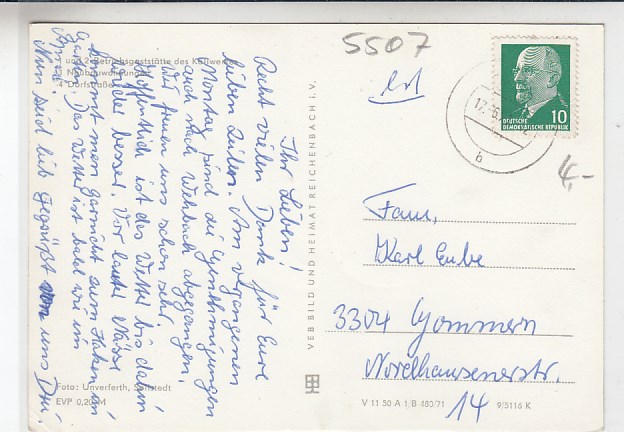 5507
1 und 2 Betriebsgaststätte des Kaliwerkes
3 Neubauwohnungen
4 Dorfstraße
Ihr Lieben!
Recht vielen Dank für Eure
lieben Zeilen. Am vergangenen
Montag sind die Genehmigungen
auch nach Wehbach abgegangen.
Wir freuen uns schon sehr.
Hoffentlich ist das Wetter bis dahin
wieder besser. Vor lauter Nässe
kommt man garnicht zum Hacken im
Garten. Das Wetter ist bald wie im
April!
Nun seid lieb gegrüßt von uns Drei.
Foto: Unverferth, Sollstedt
EVP 0,20 M
VEB BILD UND HEIMAT REICHENBACH i. V.
DEUTSCHE
DEMOKRATISCHE REPUBLIK
10
17.-6.
b
4,-
Fam.
Karl Eube
3304 Gommern
Nordhausenerstr.
14
V 11 50 A 1/B 480/71
9/5116 K